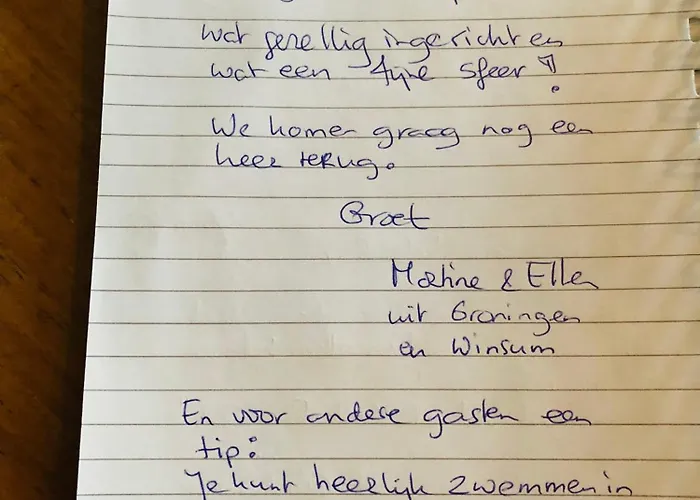 wat gezellig ingericht en
wat een fijne sfeer!
We komen graag nog een
keer terug.
Groet
Martine & Ellen
uit Groningen
en Winsum
En voor andere gasten een
tip:
Je kunt heerlijk zwemmen in